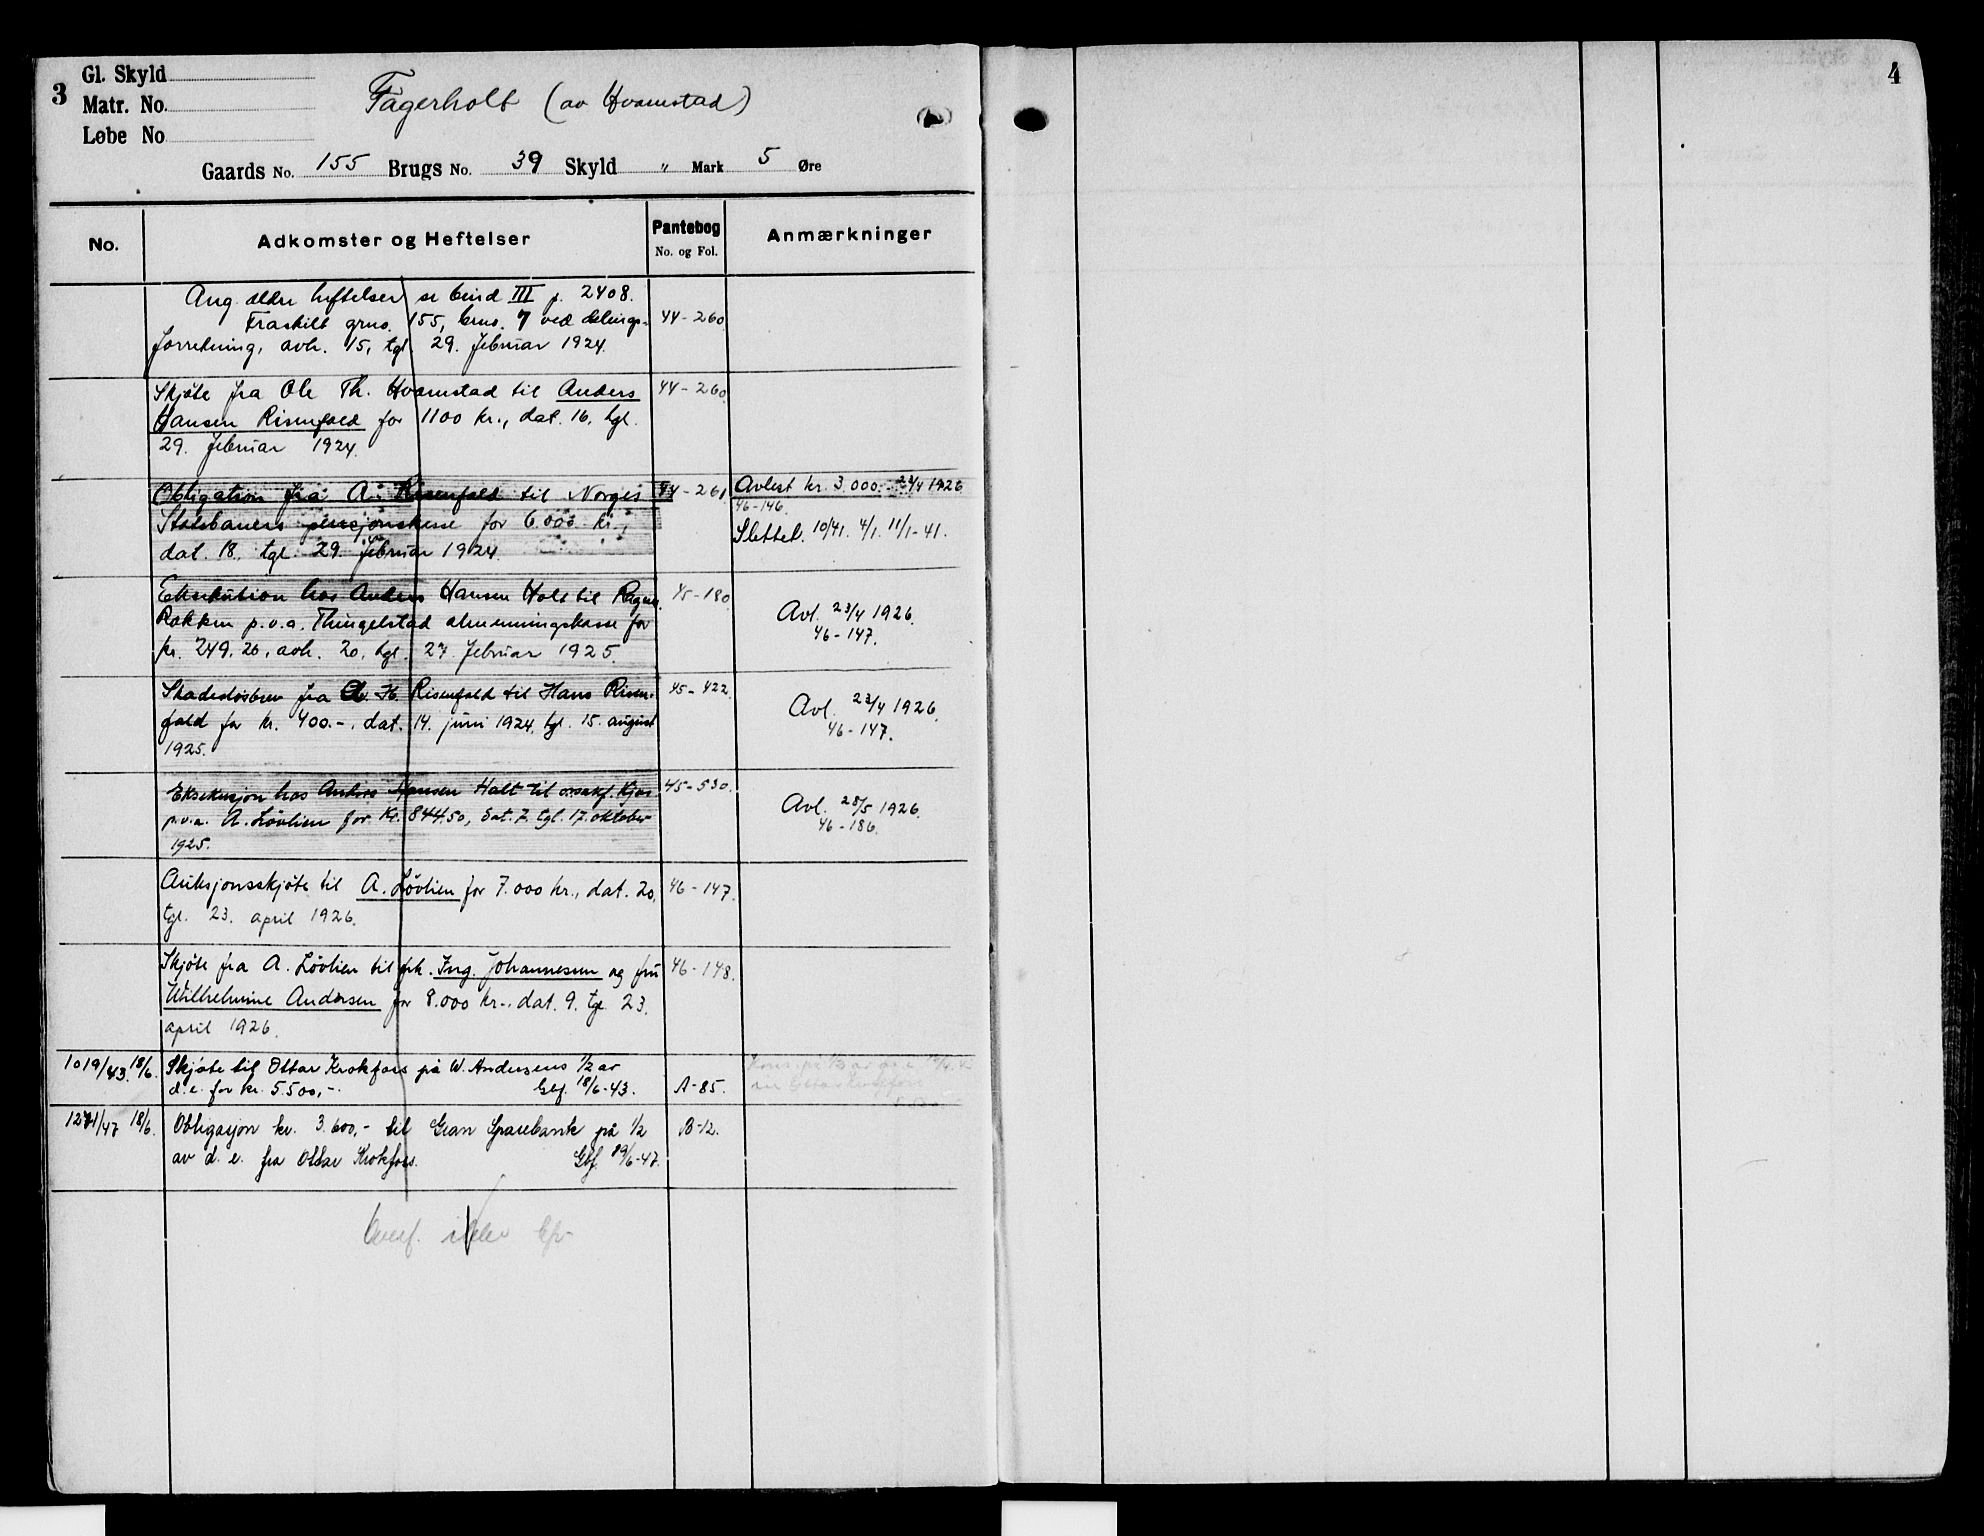 3
Gl. Skyld
Matr. No.
Løbe No
Fagerholt (av Hvamstad)
Gaards No. 155 Brugs No. 39 Skyld " Mark 5 Øre
No.
Adkomster og Heftelser
Pantebog
No. og Fol.
Anmærkninger
Ang. ældre heftelser se bind III p. 2408.
Fraskilt grno. 155, brno. 7 ved delings- 44-260
forretning, avh. 15, tgl. 29. februar 1924.
Skjøte fra Ole Th. Hvamstad til Anders 44-260
Hansen Risenfald for 1100 kr., dat. 16, tgl.
29. februar 1924.
Obligation fra A. Risenfald til Norges 44-261 Avlest kr. 3.000.- 23/4 1926
46-146.
Statsbaners pensjonskasse for 6.000 kr.,
Slettet. 10/41. 4/1. 11/1-41.
dat. 18. tgl. 29. februar 1924
Eksekution hos Anders Hansen Holt til 45-180
Røkken p.v.a. Thingelstad almenningskasse for Avl. 23/4 1926.
46-147.
kr. 249.26, avh. 20, tgl. 27. februar 1925.
Skadesløsbrev fra H. Risenfald til Hans Risen- 45-422
fald for kr. 400.-, dat. 14. juni 1924, tgl. 15. august Avl. 23/4 1926.
46-147.
1925.
Eksekusjon hos Anders Hansen Holt til 45-530.
p.v.a. A. Løvlien for kr. 844.50, dat. 7. tgl. 17. oktober Avl. 28/5 1926.
46-186.
1925.
Auksjonsskjøte til A. Løvlien for 7.000 kr., dat. 20, 46-147.
tgl. 23. april 1926.
Skjøte fra A. Løvlien til frk. Ing. Johannesen og fru 46-148.
Wilhelmine Andersen for 8.000 kr., dat. 9. tgl. 23.
april 1926.
1019/43. 18/6. Skjøte til Ottar Krokfors på W. Andersens 1/2 av
d.e. for kr. 5.500,-. Gbf. 18/6-43. A-85.
1271/47 18/6. Obligasjon kr. 3.600,- til Gran Sparebank på 1/2 B-12.
av d.e. fra Ottar Krokfors. Gbf. 19/6-47.
4